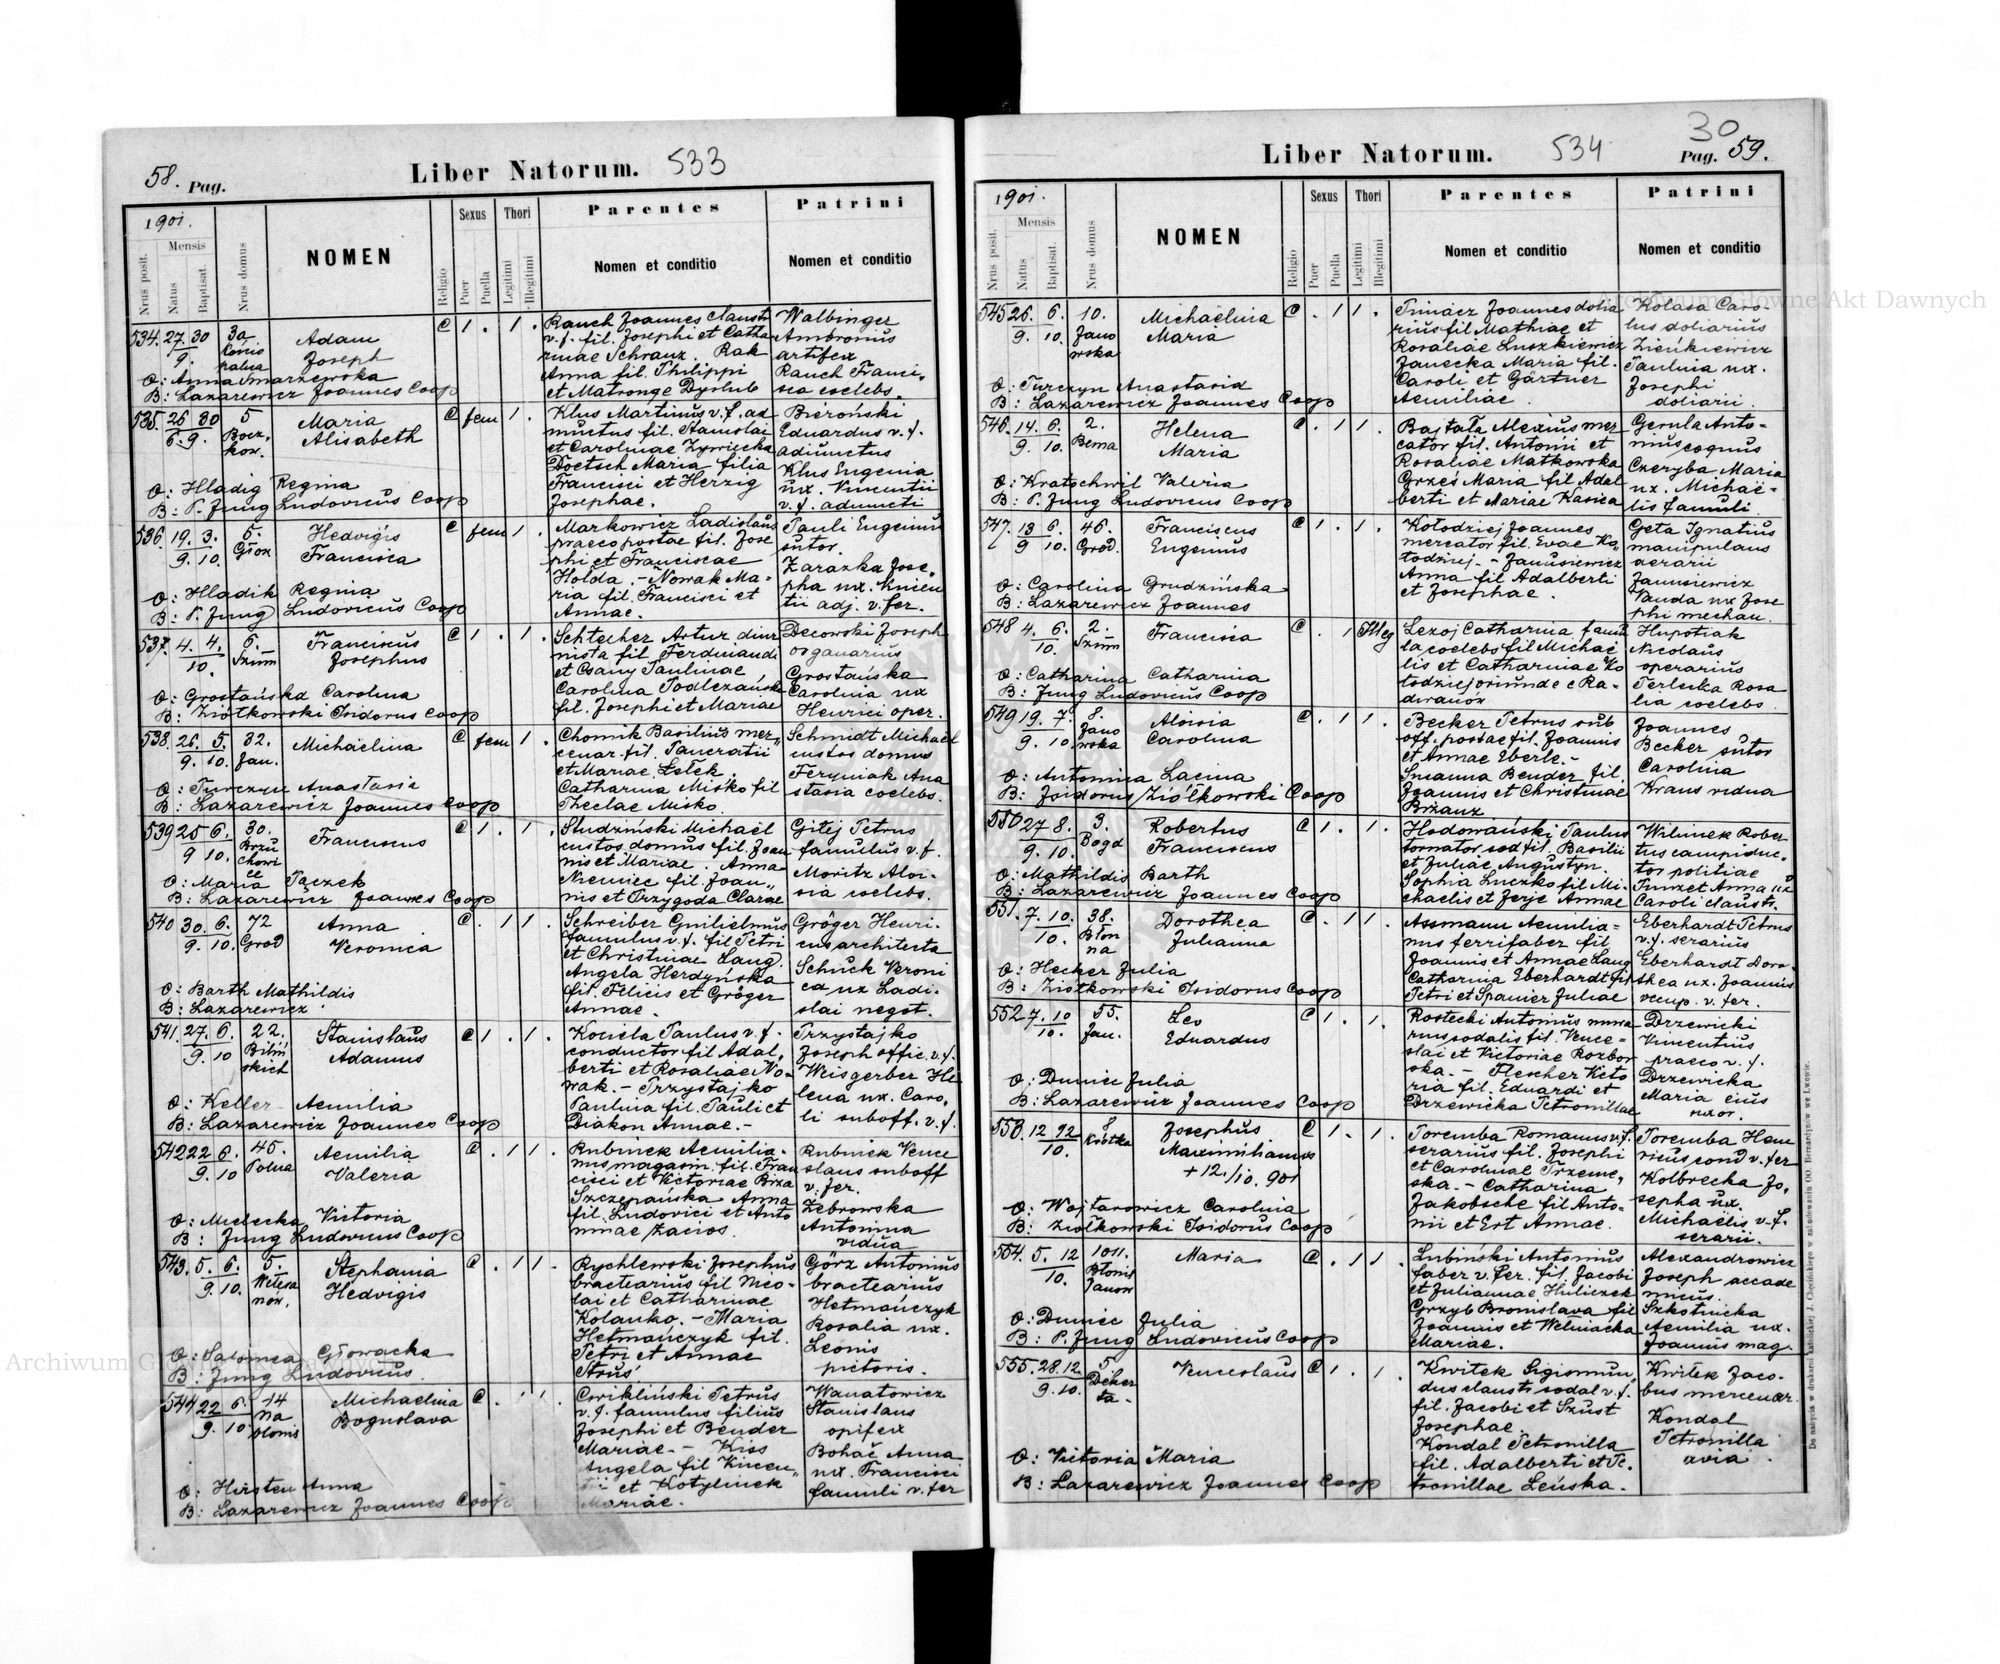 58. Pag.
Liber Natorum. 533
1901.
Nrus posit.
Mensis
Natus
Baptisat.
Nrus domus
NOMEN
Religio
Sexus
Puer
Puella
Thori
Legitimi
Illegitimi
Parentes
Nomen et conditio
Patrini
Nomen et conditio
534. 27. 30
9.
Adam
Joseph
O: Anna Smarzewska
B: Lazarewicz Joannes Coop
C 1 . 1 .
Rauch Joannes claustr
v. f. fil. Josephi et Catha
rinae Schranz. Rak
Anna fil. Philippi
Walbinger
Ambrosius
artifex
Rauch Franci.
sca coelebs.
535. 26 30
8. 9.
5
Maria
Alisabeth
O: Hladig Regina
B: P. Jung Ludovicus Coop
C fem 1 .
Klus Martinus v. f. ad
munctus fil. Stanislai
et Carolinae Zywiecka
Doetsch Maria filia
Francisci et Herzig
Josephae.
Bieroński
Eduardus v. f.
adiunctus
Klus Eugenia
ux. Vincentii
v. f. adiuncti
536. 19. 3.
9. 10.
5.
Hedvigis
Francisca
O: Hladik Regina
B: P. Jung Ludovicus Coop
C fem 1 .
Markowicz Ladislaus
praeco postae fil. Jose
phi et Franciscae
Holda. - Nowak Ma=
ria fil. Francisci et
Annae.
Pauli Eugenius
sutor
Zarazka Jose,
pha ux. Knicen
tii adj. v. fer.
537. 4. 4.
10.
6.
Szum
Franciscus
Josephus
O: Grostańska Carolina
B: Ziółkowski Isidorus Coop
C 1 . 1 .
Schtecher Artur diur
nista fil Ferdinandi
et Csany Paulinae
Carolina Podlezańska
fil. Josephi et Mariae
Decowski Joseph
organarius
Grostańska
Carolina ux
Henrici oper.
538. 26. 5.
9. 10.
32.
Jan.
Michaëlina
O: Turczyn Anastasia
B: Lazarewicz Joannes Coop
C fem 1 .
Chomik Basilius mer,,
cenar. fil. Pancratii
et Mariae Lełek
Catharina Miśko fil
Theclae Miśko
Schmidt Michaël
custos domus
Feryniak Ana
stasia coelebs.
539 25 6.
9 10.
30.
Brzu
chowi
ce
Franciscus
O: Maria Paczek
B: Lazarewicz Joannes Coop
C 1 . 1 .
Studziński Michaël
custos domus fil. Joan
nis et Mariae. Anna
Niemiec fil Joan,,
nis et Przygoda Clarae
Gitej Petrus
famulus v. f.
Moritz Aloi-
sia coelebs.
540 30. 6.
9. 10.
72
Grod
Anna
Veronica
O: Barth Mathildis
B: Lazarewicz
C . 1 1 .
Schreiber Guilielmus
famulus v. f. fil Petri
et Christinae Lang.
Angela Herdyńska
fil. Felicis et Gröger
Annae.
Gröger Henri-
cus architecta
Schuck Veroni
ca ux Ladi-
slai negot.
541. 27. 6.
9. 10
22.
Bilin
skich
Stanislaus
Adamus
O: Keller Aemilia
B: Lazarewicz Joannes Coop
C 1 . 1 .
Kocieła Paulus v. f.
conductor fil Adal,
berti et Rosaliae No-
wak. - Przystajko
Paulina fil. Pauli et
Diakon Annae. -
Przystajko
Joseph offic. v. f.
Weisgerber He
lena ux. Caro,
li suboff. v. f.
542 22 6.
9. 10
45.
Polna
Aemilia
Valeria
O: Mielecka Victoria
B: Jung Ludovicus Coop
C . 1 1 .
Rubinek Aemilia-
nus magasin. fil. Fran
cisci et Victoriae Brza
Szczepańska Anna
fil. Ludovici et Anto
ninae Zacios.
Rubinek Vence
slaus suboff
v. fer.
Żebrowska
Antonina
vidua
543. 5. 6.
9. 10.
5.
Stephania
Hedvigis
O: Salomea Głowacka
B: Jung Ludovicus.
C . 1 1 .
Rychlewski Josephus
bractearius fil Nico-
lai et Catharinae
Kolanko. - Maria
Hetmańczyk fil.
Petri et Annae
Struś
Görz Antonius
bractearius
Hetmańczyk
Rosalia ux.
Leonis
pictoris.
544 22 6.
9. 10
14
Na
błonie
Michaëlina
Bogusława
O: Hirsten Anna
B: Lazarewicz Joannes Coop
C .
Cwikliński Petrus
v. f. famulus filius
Josephi et Bender
Mariae. - Kiss
Angela fil Vincen,,
tii et Kotylinek
Mariae.
Wanatowicz
Stanislaus
opifex
Bohač Anna
ux. Francisci
famuli v. fer
Liber Natorum. 534
30
Pag. 59.
1901.
Nrus posit.
Mensis
Natus
Baptisat.
Nrus domus
NOMEN
Religio
Sexus
Puer
Puella
Thori
Legitimi
Illegitimi
Parentes
Nomen et conditio
Patrini
Nomen et conditio
545 26. 6.
9. 10.
10.
Jano
wska
Michaëlina
Maria
O: Turczyn Anastasia
B: Lazarewicz Joannes Coop
C . 1 1 .
Joannes dolia
rius fil Mathiae et
Rosaliae Luszkiewicz
Janecka Maria fil.
Caroli et Gärtner
Aemiliae.
Kolasa Caro-
lus doliarius
Zieńkiewicz
Paulina ux.
Josephi
doliarii.
546. 14. 6.
9. 10.
2.
Bema
Helena
Maria
O: Kratschwil Valeria
B: P. Jung Ludovicus Coop
C . 1 1 .
Bajtała Alexius mer
cator fil. Antonii et
Rosaliae Matkowska
Grześ Maria fil Adal
berti et Mariae Kasica
Gerula Anto-
nius coquus
Czeryba Maria
ux. Michaë-
lis famuli.
547. 13 6.
9 10.
46.
Grod.
Franciscus
Eugenius
O: Carolina Grudzińska
B: Lazarewicz Joannes
C 1 . 1 .
Kołodziej Joannes
mercator fil. Evae Ko,,
łodziej. - Janusiewicz
Anna fil Adalberti
et Josephae.
Geta Ignatius
manipulans
aerarii
Janusiewicz
Vanda ux Jose
phi mechan.
548 4. 6.
10.
2.
Szum
Francisca
O: Catharina Catharina
B: Jung Ludovicus Coop
C . 1 Illeg
Lezoj Catharina famu
la coelebs fil Michaë
lis et Catharinae Ko
łodziej oriunde e Ra-
dwanów
Hupotiak
Nicolaus
operarius
Terlecka Rosa
lia coelebs.
549 19. 7.
9. 10
8.
Jano
wska
Aloisia
Carolina
O: Antonina Lacina
B: Isidorus Ziółkowski Coop
C . 1 1 .
Becker Petrus sub
off. postae fil. Joannis
et Annae Eberle. -
Susanna Bender fil.
Joannis et Christinae
Brzanz
Joannes
Becker sutor
Carolina
Kraus vidua
550 27 8.
9. 10.
3.
Bogd
Robertus
Franciscus
O: Mathildis Barth
B: Lazarewicz Joannes Coop
C 1 . 1 .
Hodowański Paulus
tornator sod fil. Basilii
et Juliae Augustyn.
Sophia Luczko fil Mi-
chaelis et Jerje Annae
Wilimek Rober-
tus campiduc-
tor politiae
Anna ux
Caroli claustr.
551. 7. 10.
10.
38.
Błon
na
Dorothea
Julianna
O: Hecker Julia
B: Ziółkowski Isidorus Coop
C . 1 1 .
Assmann Aemilia=
nus ferrifaber fil
Joannis et Annae Lang
Catharina Eberhardt fil
Petri et Spanier Juliae
Eberhardt Petrus
v. f. serarius
Eberhardt Doro-
thea ux. Joannis
occup. v. fer.
552 7. 10
10.
55.
Jan.
Leo
Eduardus
O: Duniec Julia
B: Lazarewicz Joannes Coop
C 1 . 1 .
Rostecki Antonius mura
rius sodalis fil. Vence-
slai et Victoriae Rozbor
ska. - Flescher Victo
ria fil. Eduardi et
Drzewicka Petronillae
Drzewicki
Vincentius
praeco v. f.
Drzewicka
Maria eius
uxor.
553. 12 12
10.
8
Krótka
Josephus
Maximilianus
+ 12./10. 901
O: Wojtarowicz Carolina
B: Ziółkowski Isidorus Coop
C 1 . 1 .
Poremba Romanus v. f.
serarius fil. Josephi
et Carolinae Trzeme,
ska. - Catharina
Jakobsche fil Anto-
nii et Ert Annae.
Poremba Hen
ricus cond v. fer
Kolbrecka Jo,
sepha ux.
Michaëlis v. f.
serarii.
554. 5. 12
10.
1011.
Błonie
Janow
Maria
O: Duniec Julia
B: P. Jung Ludovicus Coop
C . 1 1 .
Lubiński Antonius
faber v. fer. fil. Jacobi
et Juliannae Huliczek
Grzyb Bronislava fil
Joannis et Welniacka
Mariae.
Alexandrowicz
Joseph accade
micus.
Szkotnicka
Aemilia ux.
Joannis mag.
555. 28. 12
9. 10.
5
Deker
ta.
Venceslaus
O: Victoria Maria
B: Lazarewicz Joannes Coop
C 1 . 1 .
Kwitek Sigismun,
dus claustr sodal v. f.
fil. Jacobi et Szust
Josephae.
Kondal Petronilla
fil. Adalberti et Pe-
tronillae Leńska.
Kwitek Jaco-
bus mercenar.
Kondal
Petronilla
avia
Do nabycia w drukarni katolickiej J. Chęcińskiego w zabudowaniu OO. Bernardynów we Lwowie.
Archiwum Główne Akt Dawnych
Archiwum Główne Akt Dawnych